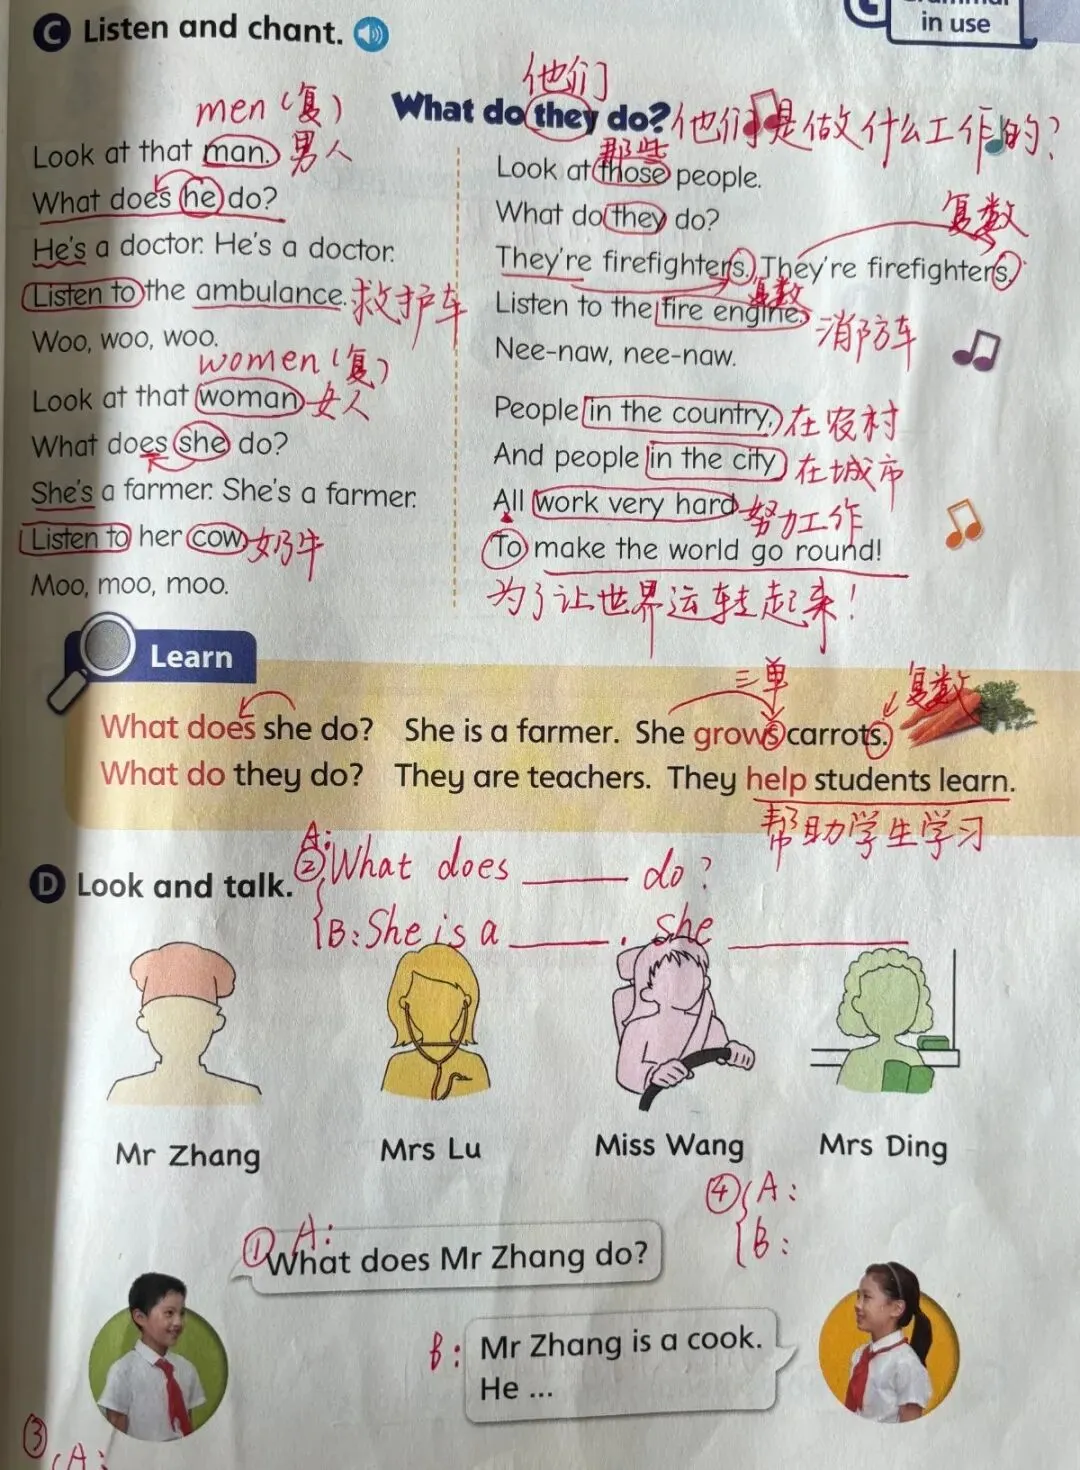 C Listen and chant.
in use
他们
men(复)
What do they do? 他们是做什么工作的?
Look at that man. 男人
What does he do?
He's a doctor. He's a doctor.
Listen to the ambulance. 救护车
Woo, woo, woo.
women(复)
Look at that woman 女人
What does she do?
She's a farmer. She's a farmer.
Listen to her cow 奶牛
Moo, moo, moo.
那些
Look at those people.
What do they do?
复数
They're firefighters. They're firefighters.
复数
Listen to the fire engine. 消防车
Nee-naw, nee-naw.
People in the country, 在农村
And people in the city 在城市
All work very hard 努力工作
To make the world go round!
为了让世界运转起来!
Learn
三单
复数
What does she do? She is a farmer. She grows carrots.
What do they do? They are teachers. They help students learn.
帮助学生学习
D Look and talk.
A:
② What does ____ do?
B: She is a ____. she ____
Mr Zhang
Mrs Lu
Miss Wang
Mrs Ding
④ A:
B:
① A:
What does Mr Zhang do?
B: Mr Zhang is a cook.
He ...
③
A: